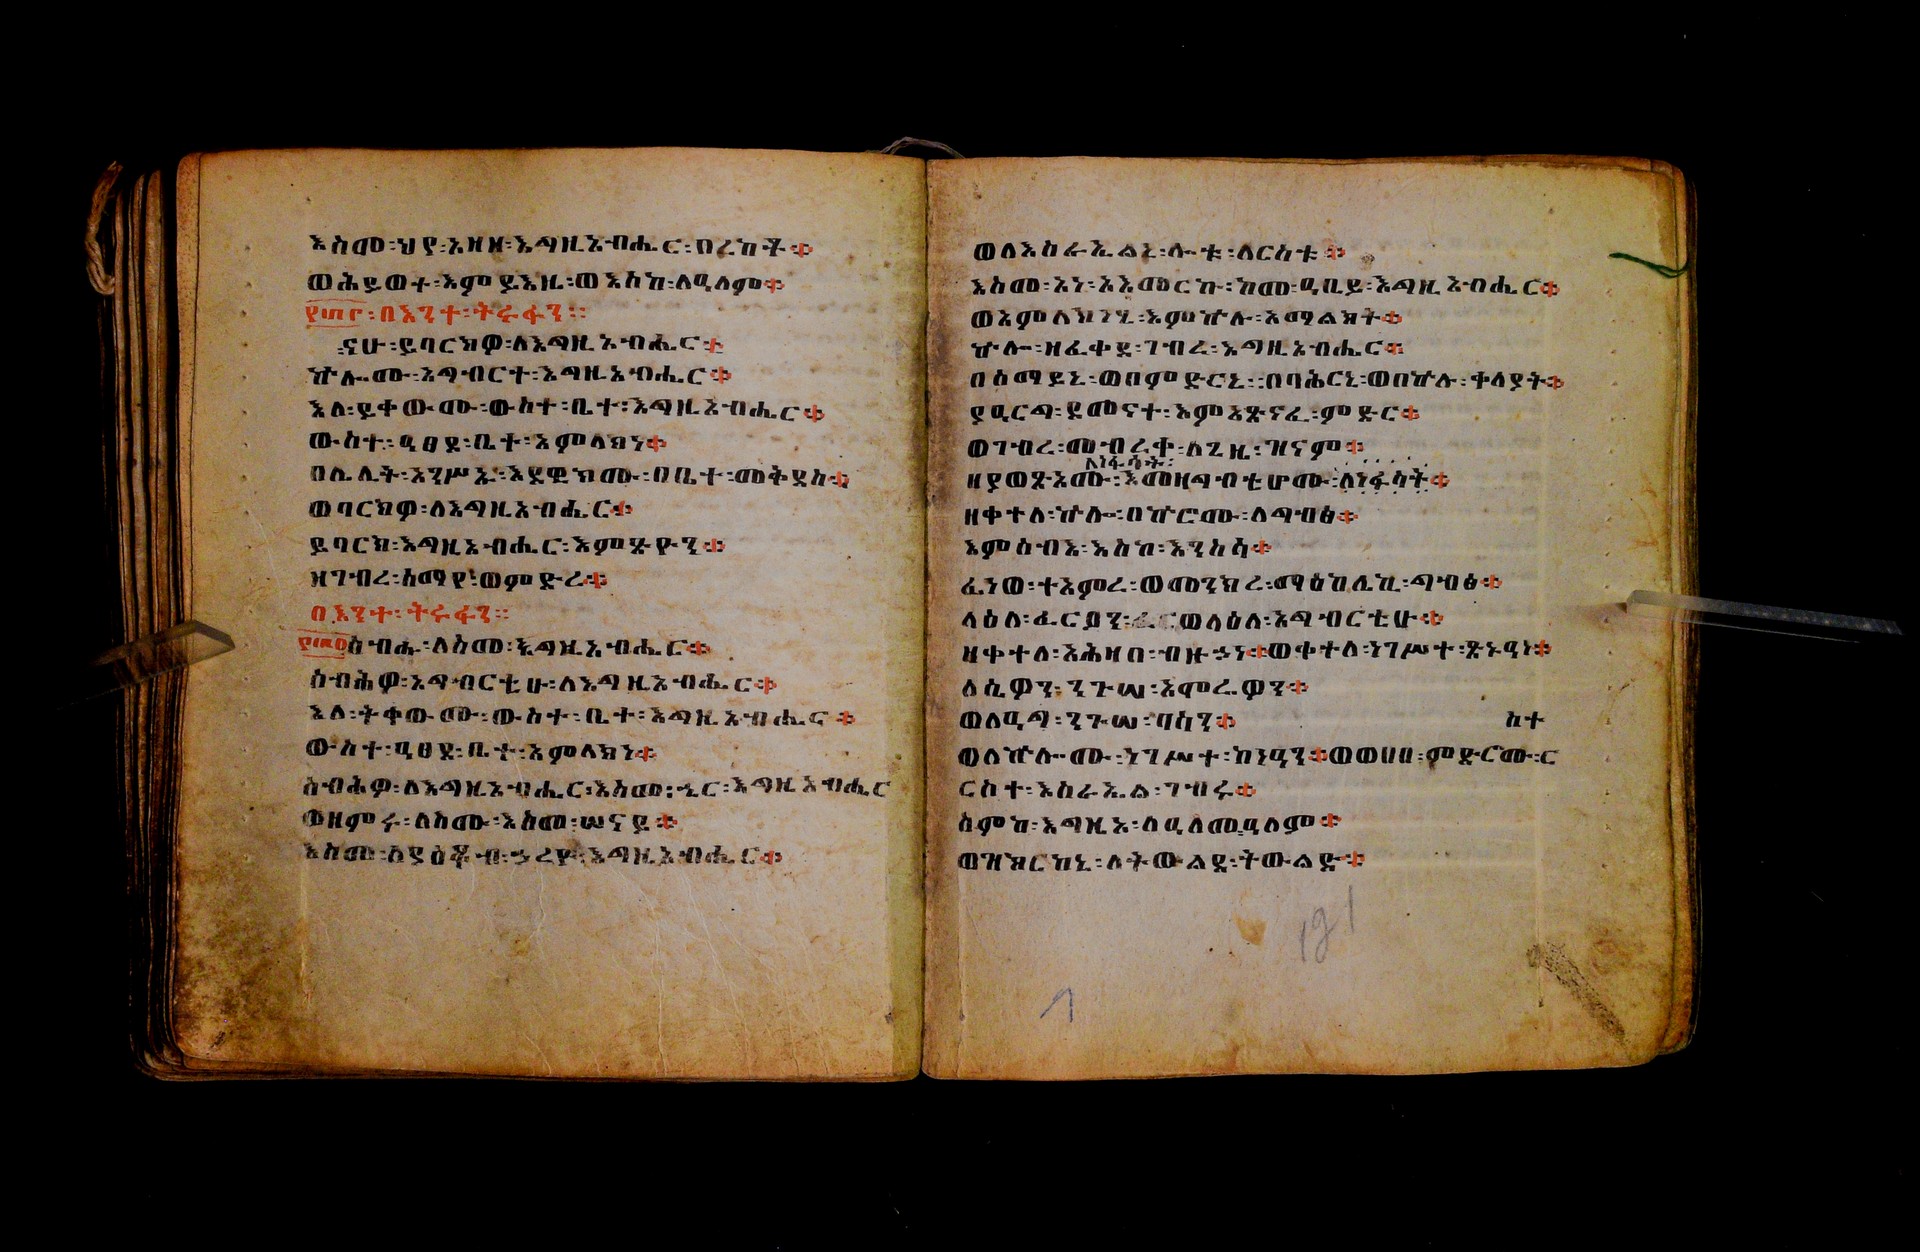 እስመ፡ህየ፡አዘዘ፡እግዚአብሔር፡በረከት፨
ወሕይወተ፡እምይእዜ፡ወእስከ፡ለዓለም፨
፻፴፫፡በእንተ፡ትሩፋን፡፡
ናሁ፡ይባርክዎ፡ለእግዚአብሔር፨
ኵሎሙ፡አግብርተ፡እግዚአብሔር፨
እለ፡ይቀውሙ፡ውስተ፡ቤተ፡እግዚአብሔር፨
ውስተ፡ዓፀደ፡ቤተ፡አምላክነ፨
በሌሊት፡አንሥኡ፡እደዊክሙ፡በቤተ፡መቅደስ፨
ወባርክዎ፡ለእግዚአብሔር፨
ይባርክ፡እግዚአብሔር፡እምጽዮን፨
ዘገብረ፡ሰማየ፡ወምድረ፨
በእንተ፡ትሩፋን፡፡
፻፴፬ሰብሑ፡ለስመ፡እግዚአብሔር፨
ሰብሕዎ፡አግብርቲሁ፡ለእግዚአብሔር፨
እለ፡ትቀውሙ፡ውስተ፡ቤተ፡እግዚአብሔር፨
ውስተ፡ዓፀደ፡ቤተ፡አምላክነ፨
ሰብሕዎ፡ለእግዚአብሔር፡እስመ፡ኄር፡እግዚአብሔር
ወዘምሩ፡ለስሙ፡እስመ፡ሠናይ፨
እስመ፡ለያዕቆብ፡ኃረዮ፡እግዚአብሔር፨
ወለእስራኤልኒ፡ሎቱ፡ለርስቱ፨
እስመ፡አነ፡አእመርኩ፡ከመ፡ዓቢይ፡እግዚአብሔር፨
ወአምላክነኒ፡እምኵሉ፡አማልክት፨
ኵሎ፡ዘፈቀደ፡ገብረ፡እግዚአብሔር፨
በሰማይኒ፡ወበምድርኒ፡፡በባሕርኒ፡ወበኵሉ፡ቀላያት፨
ያዓርግ፡ደመናተ፡እምአጽናፈ፡ምድር፨
ወገብረ፡መብረቀ፡ለጊዜ፡ዝናም፨
ለነፋሳት፡
ዘያወጽኦሙ፡እመዛግብቲሆሙ፡ለነፋሳት፨
ዘቀተለ፡ኵሎ፡በኵሮሙ፡ለግብፅ፨
እምሰብእ፡እስከ፡እንስሳ፨
ፈነወ፡ተአምረ፡ወመንክረ፡ማዕከሌኪ፡ግብፅ፨
ላዕለ፡ፈርዖን፡ወላዕለ፡አግብርቲሁ፨
ዘቀተለ፡አሕዛበ፡ብዙኃነ፨ወቀተለ፡ነገሥተ፡ጽኑዓነ፨
ለሴዎን፡ንጉሠ፡አሞሬዎን፨
ወለዓግ፡ንጉሠ፡ባሳን፨ ስተ
ወለኵሎሙ፡ነገሥተ፡ከነዓን፨ወወሀበ፡ምድሮሙ፡ር
ርስተ፡እስራኤል፡ገብሩ፨
ስምከ፡እግዚኦ፡ለዓለመዓለም፨
ወዝክርከኒ፡ለትውልደ፡ትውልድ፨
191